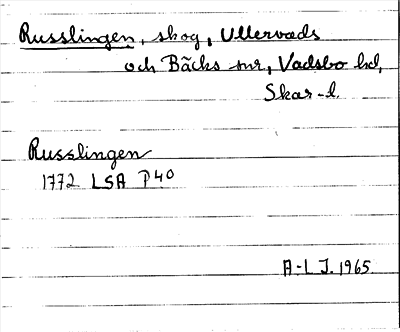 Russlingen, skog, Ullervads
och Bäcks snr, Vadsbo hd,
Skar-l.
Russlingen
1772 LSA P40
A-L J. 1965